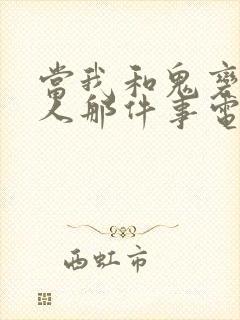 當我和鬼變
人那件事電
西虹市